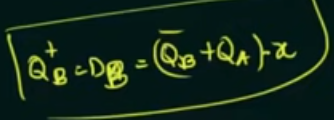 Q_B^+ = D_B = (Q̅_B + Q_A) · x